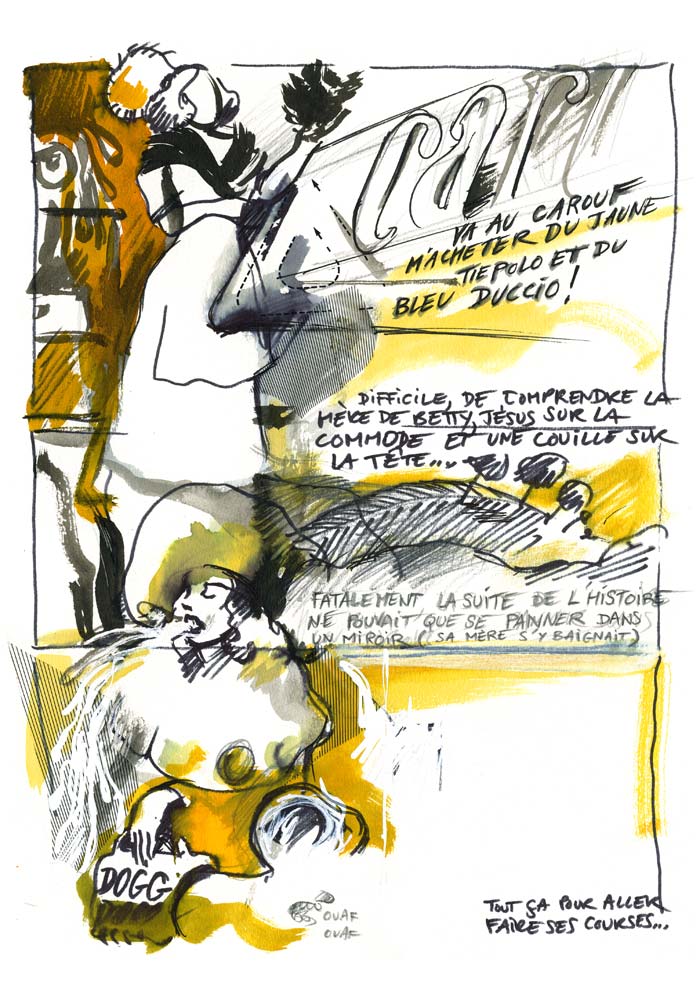 Carl
VA AU CAROUF
M'ACHETER DU JAUNE
TIEPOLO ET DU
BLEU DUCCIO!
DIFFICILE, DE COMPRENDRE LA
MÈRE DE BETTY, JÉSUS SUR LA
COMMODE ET UNE COUILLE SUR
LA TÊTE...
FATALEMENT LA SUITE DE L'HISTOIRE
NE POUVAIT QUE SE PANNER DANS
UN MIROIR (SA MÈRE S'Y BAIGNAIT)
DOGG
OUAF
OUAF
TOUT ÇA POUR ALLER
FAIRE SES COURSES...